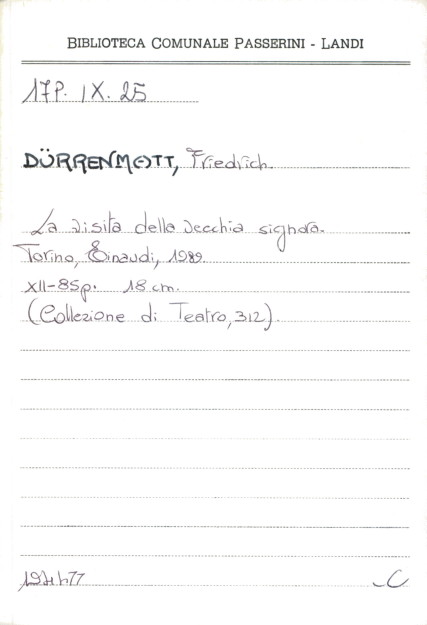 BIBLIOTECA COMUNALE PASSERINI - LANDI
17P. IX. 25
DÜRRENMOTT, Friedrich.
La visita della vecchia signora.
Torino, Einaudi, 1989.
XII-85p. 18 cm.
(Collezione di Teatro, 312).
C